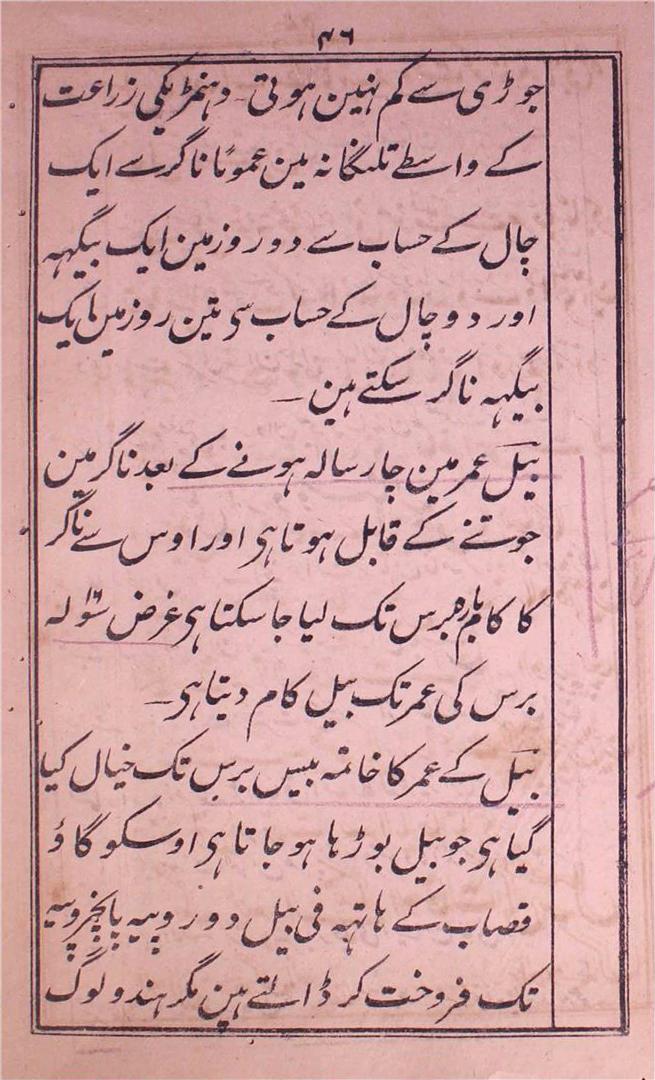 ۴۶
جوڑی سے کم نہین ہوتی۔ دہنمڑیکی زراعت
کے واسطے تلنگانہ مین عموماً ناگر سے ایک
چال کے حساب سے دو روز مین ایک بیگہہ
اور دو چال کے حساب سی تین روز مین ایک
بیگہہ ناگر سکتے ہین۔
بیل عمر مین چار سالہ ہونے کے بعد ناگر مین
جوتنے کے قابل ہوتا ہی اور اوس سے ناگر
کا کام بارہ برس تک لیا جا سکتا ہی غرض سولہ
برس کی عمر تک بیل کام دیتا ہی۔
بیل کے عمر کا خاتمہ بیس برس تک خیال کیا
گیا ہی جو بیل بوڑہا ہو جاتا ہی اوسکو گاؤ
قصاب کے ہاتہہ فی بیل دو روپیہ پانچروپیہ
تک فروخت کر ڈالتے ہین مگر ہندو لوگ